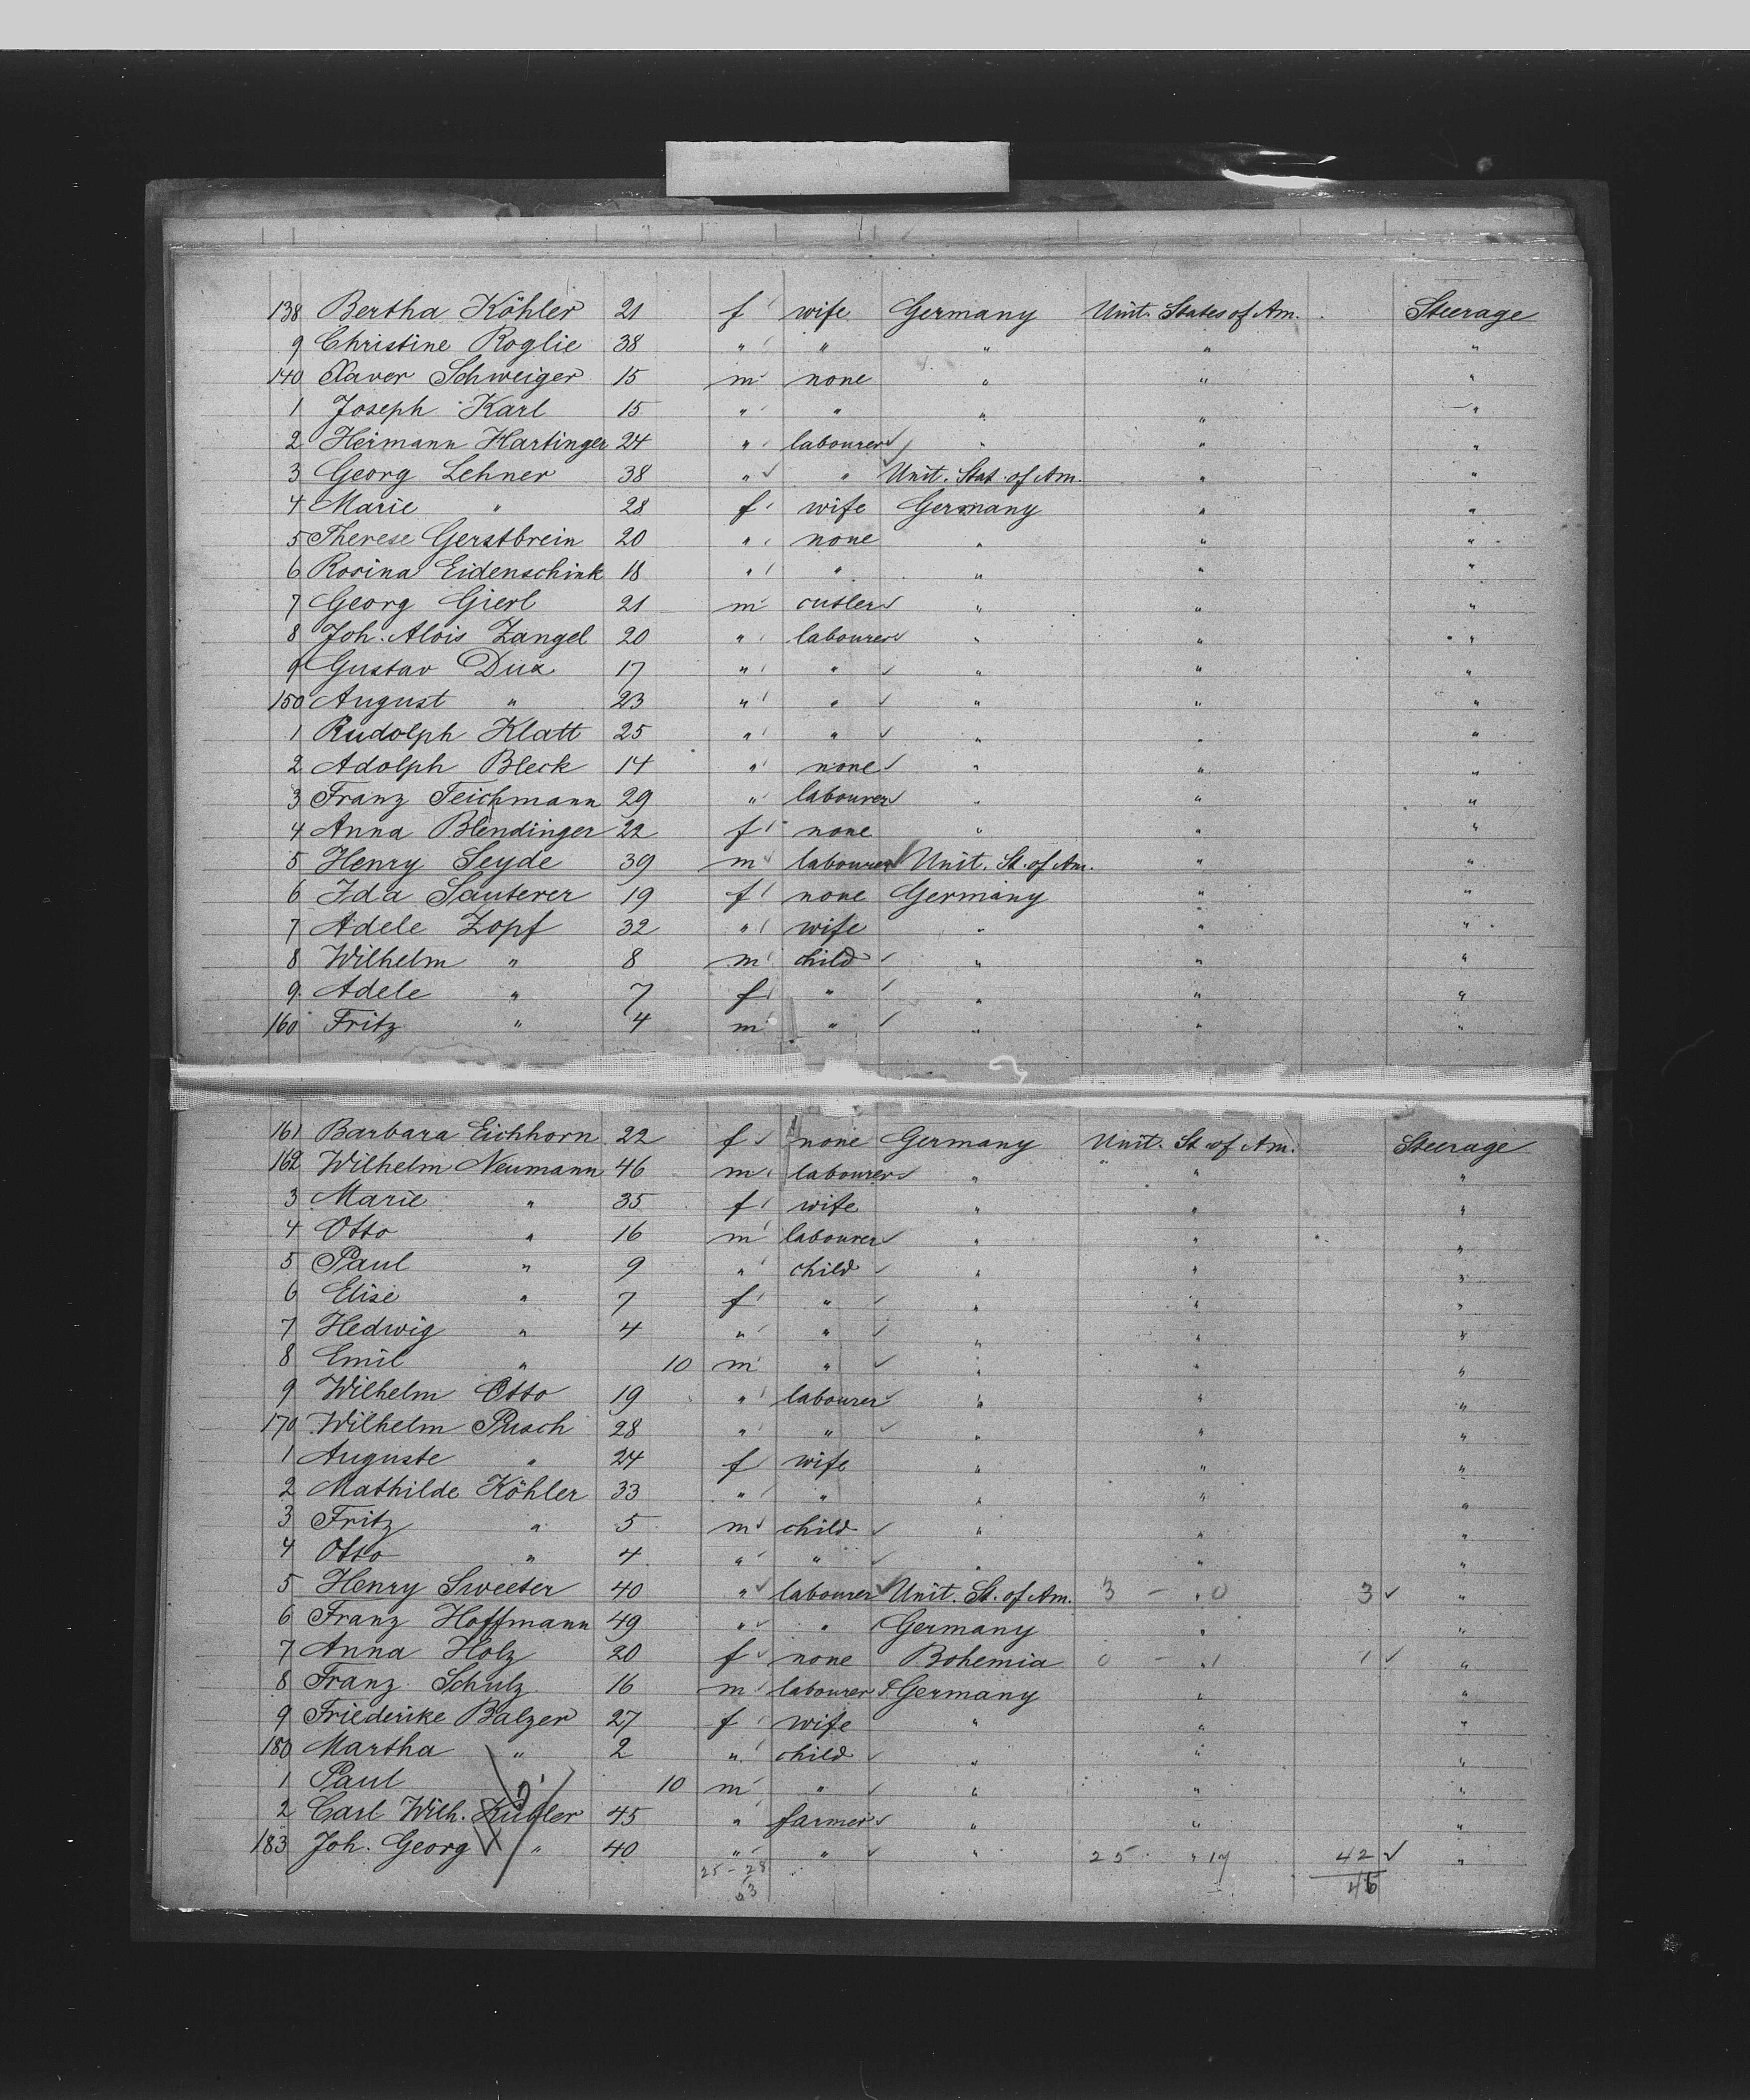 138 Bertha Köhler 21 f wife Germany Unit. States of Am. Steerage
9 Christine Roglie 38 " " " " "
140 Xaver Schweiger 15 m none " " "
1 Joseph Karl 15 " " " " "
2 Hermann Hartinger 24 " labourer " " "
3 Georg Lehner 38 " " Unit. Stat. of Am. " "
4 Marie " 28 f wife Germany " "
5 Therese Gerstbrein 20 " none " " "
6 Rosina Eidenschink 18 " " " " "
7 Georg Gierl 21 m cutler " " "
8 Joh. Alois Zangel 20 " labourer " " "
9 Gustav Dux 17 " " " " "
150 August " 23 " " " " "
1 Rudolph Klatt 25 " " " " "
2 Adolph Bleck 14 " none " " "
3 Franz Teichmann 29 " labourer " " "
4 Anna Blendinger 22 f none " " "
5 Henry Seyde 39 m labourer Unit. St. of Am. " "
6 Ida Sauterer 19 f none Germany " "
7 Adele Zopf 32 " wife " " "
8 Wilhelm " 8 m child " " "
9 Adele " 7 f " " " "
160 Fritz " 4 m " " " "
161 Barbara Eichhorn 22 f none Germany Unit. St. of Am. Steerage
162 Wilhelm Neumann 46 m labourer " " "
3 Marie " 35 f wife " " "
4 Otto " 16 m labourer " " "
5 Paul " 9 " child " " "
6 Elise " 7 f " " " "
7 Hedwig " 4 " " " " "
8 Emil " 10 m " " " "
9 Wilhelm Otto 19 " labourer " " "
170 Wilhelm Pusch 28 " " " " "
1 Auguste " 24 f wife " " "
2 Mathilde Köhler 33 " " " " "
3 Fritz " 5 m child " " "
4 Otto " 4 " " " " "
5 Henry Sweeter 40 " labourer Unit. St. of Am. 3 - " 0 3 "
6 Franz Hoffmann 49 " " Germany " "
7 Anna Holz 20 f none Bohemia 0 - " 1 1 "
8 Franz Schulz 16 m labourer Germany " "
9 Friederike Balzer 27 f wife " " "
180 Martha " 2 " child " " "
1 Paul 10 m " " " "
2 Carl Wilh. Kübler 45 " farmer " " "
183 Joh. Georg " 40 " " " 25 " 17 42 "
25 - 28 46
53